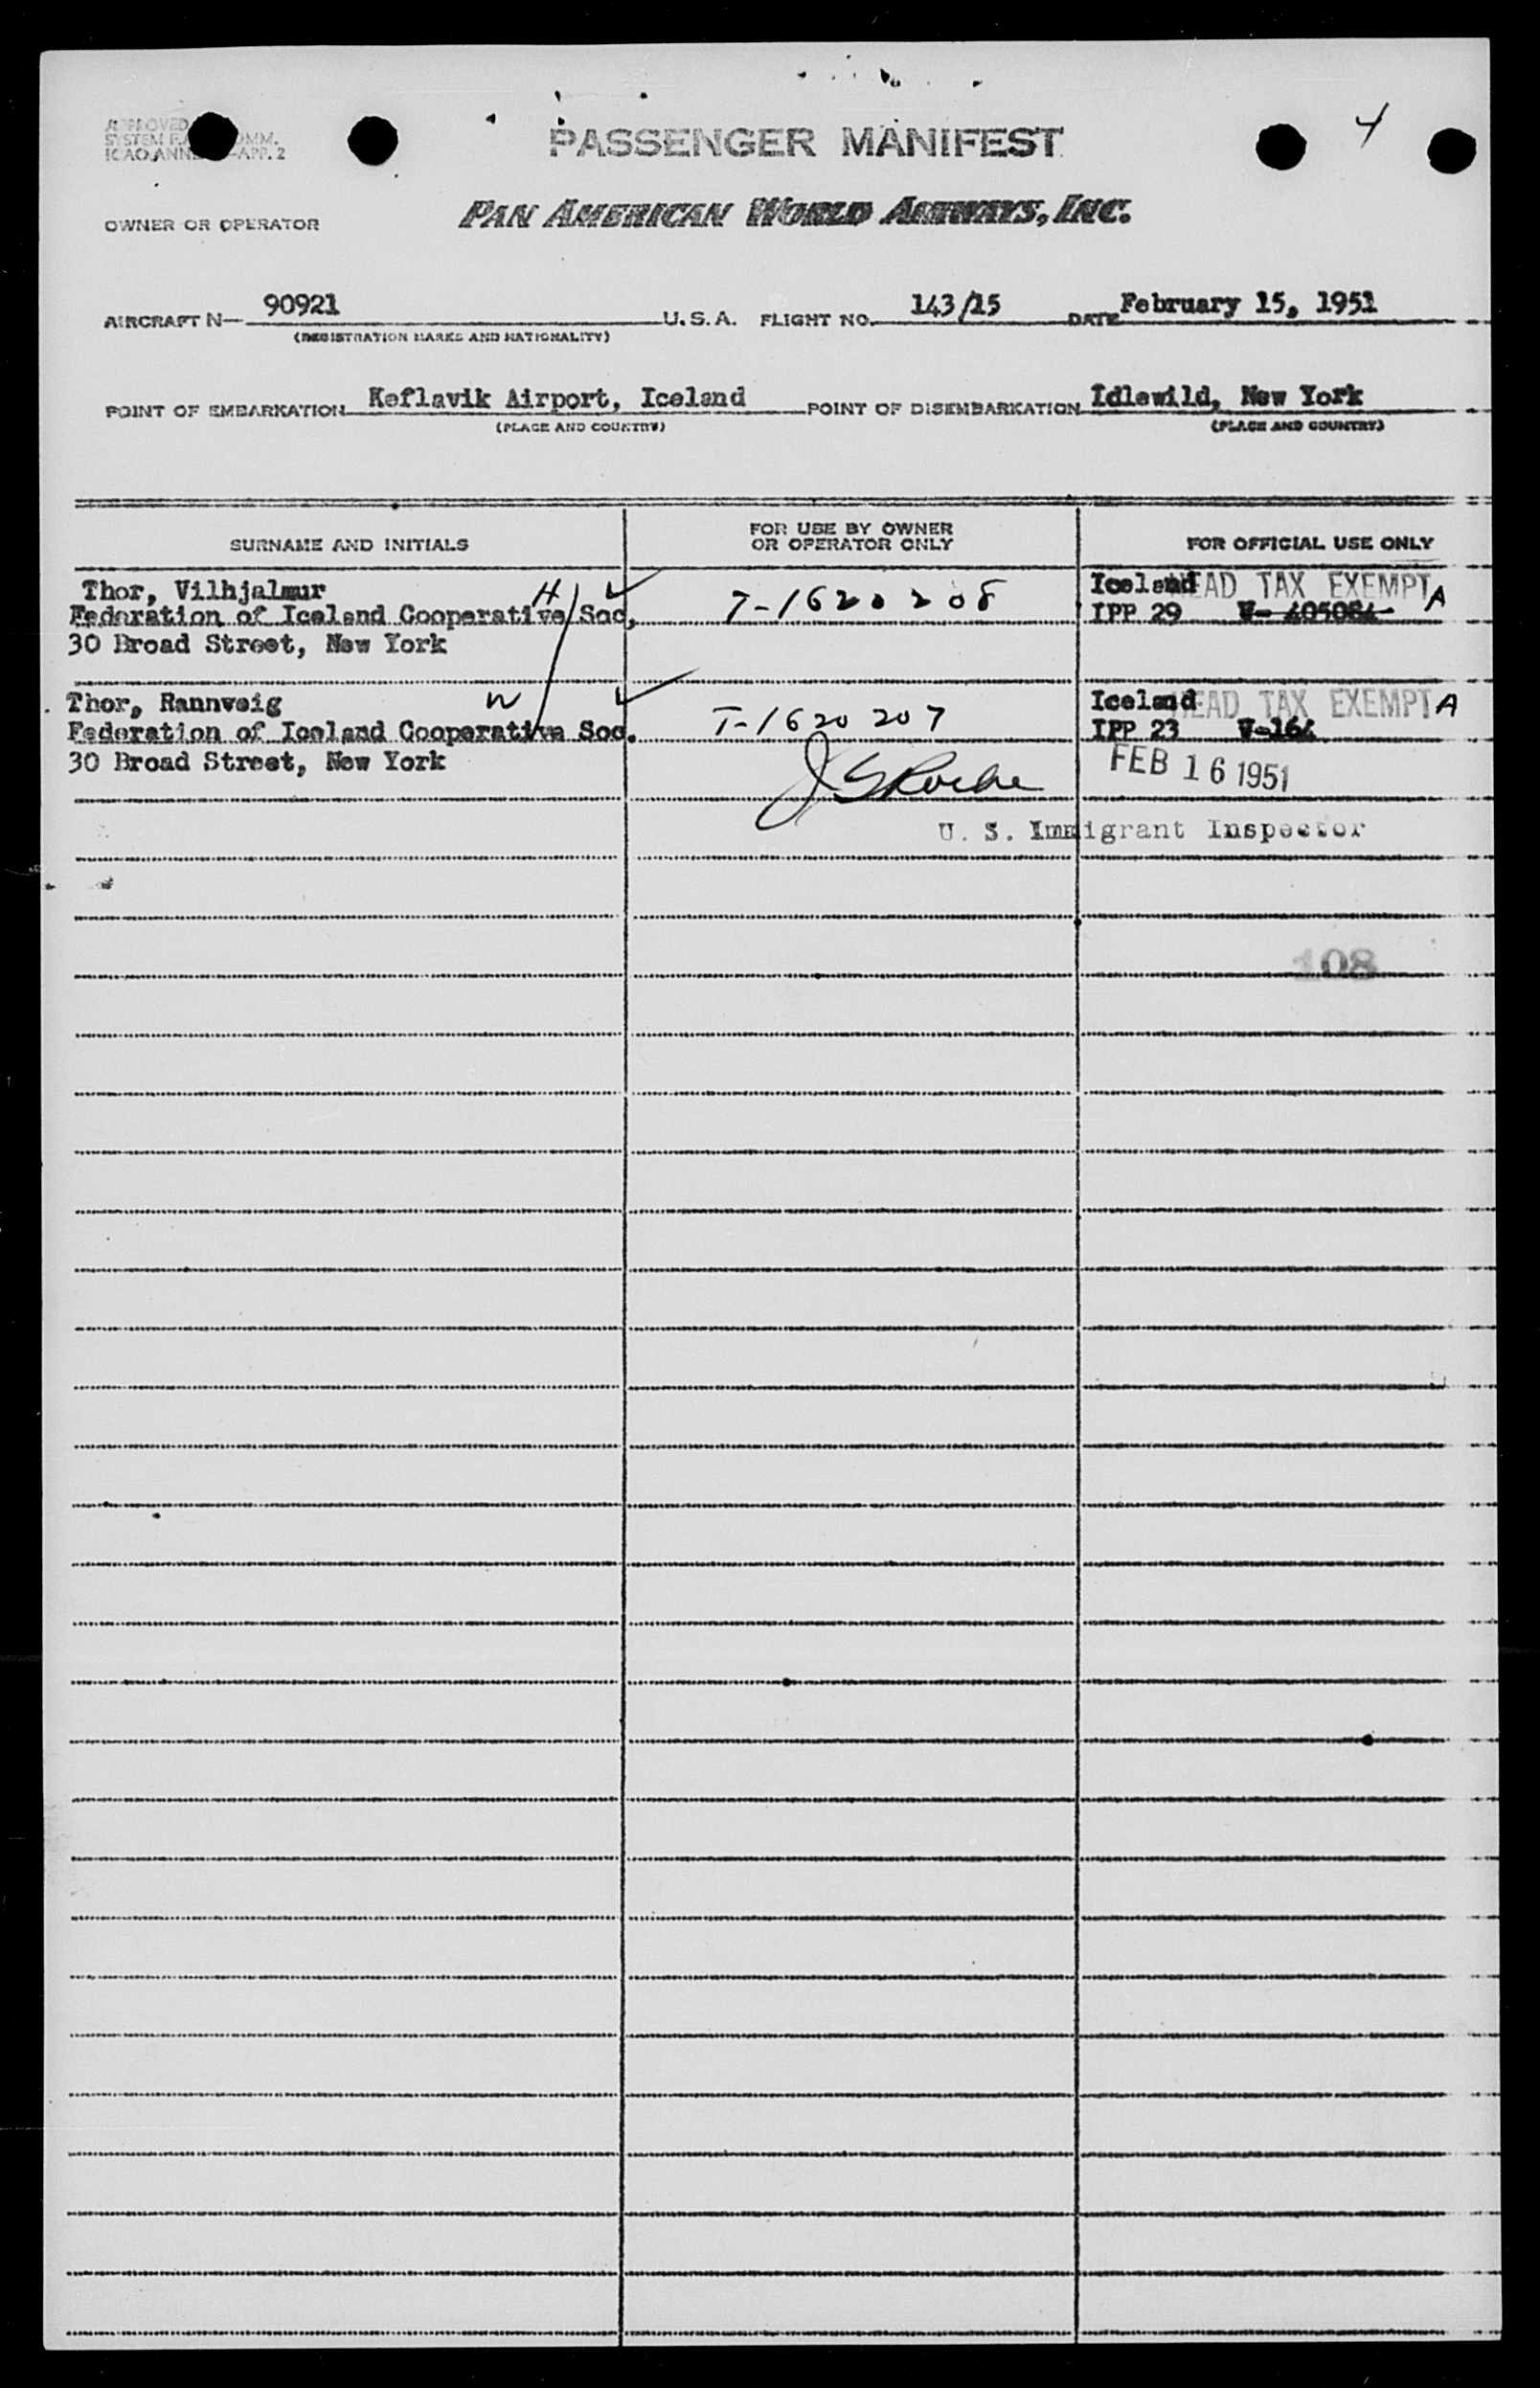 4
PASSENGER MANIFEST
OWNER OR OPERATOR PAN AMERICAN WORLD AIRWAYS, INC.
AIRCRAFT N— 90921 U.S.A. FLIGHT NO. 143/15 DATE February 15, 1951
(REGISTRATION MARKS AND NATIONALITY)
POINT OF EMBARKATION Keflavik Airport, Iceland POINT OF DISEMBARKATION Idlewild, New York
(PLACE AND COUNTRY) (PLACE AND COUNTRY)
SURNAME AND INITIALS FOR USE BY OWNER OR OPERATOR ONLY FOR OFFICIAL USE ONLY
Thor, Vilhjalmur H Iceland HEAD TAX EXEMPT A
Federation of Iceland Cooperative Soc, T-1620208 IPP 29 V- 405084
30 Broad Street, New York
Thor, Rannveig W Iceland HEAD TAX EXEMPT A
Federation of Iceland Cooperative Soc. T-1620207 IPP 23 V-164
30 Broad Street, New York FEB 16 1951
U. S. Immigrant Inspector
108